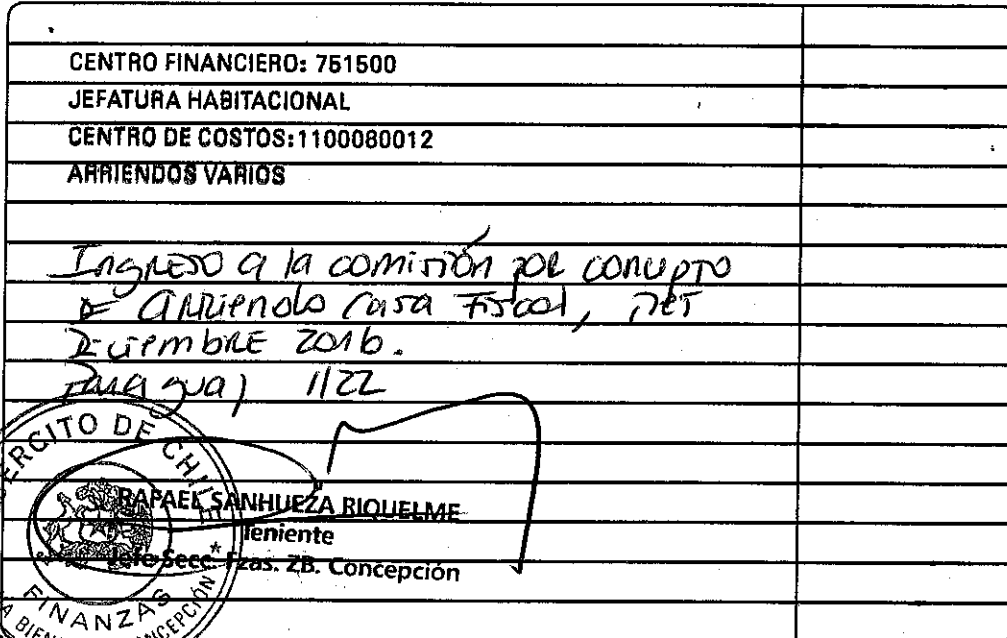 CENTRO FINANCIERO: 751500
JEFATURA HABITACIONAL
CENTRO DE COSTOS:1100080012
ARRIENDOS VARIOS
Ingreso a la comisión por concepto
de arriendo Casa Fiscal,
Diciembre 2016.
Paraguay 1122
EJERCITO DE CHILE
RAFAEL SANHUEZA RIQUELME
Teniente
Jefe Secc. Fzas. ZB. Concepción
FINANZAS